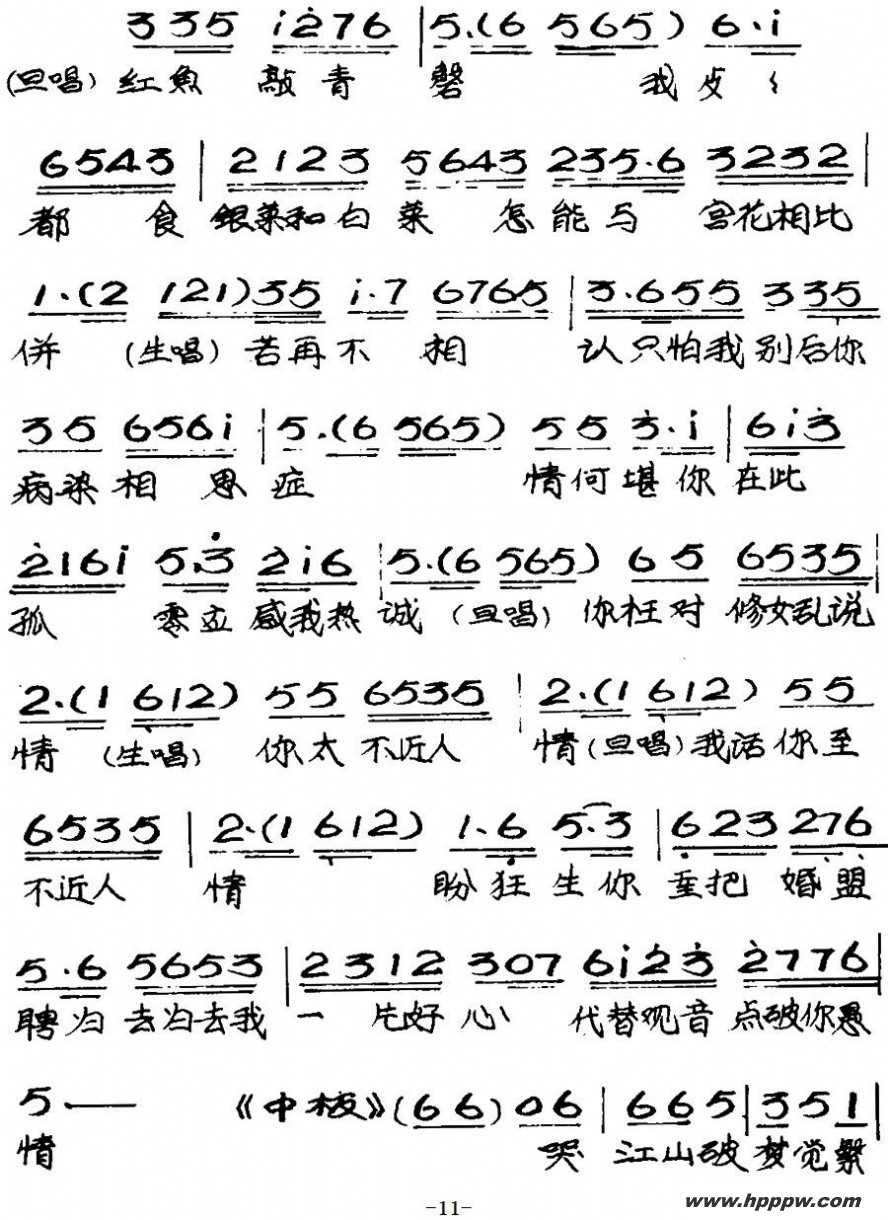 3 3 5 i 2 7 6 | 5.(6 5 6 5) 6.i
(旦唱) 红魚 敲青 磬 我
6 5 4 3 | 2 1 2 3 5 6 4 3 2 3 5.6 3 2 3 2 |
都 食 銀菜和白菜 怎能与 宫花相比
1.(2 1 2 1) 3 5 i.7 6 7 6 5 | 3.6 5 5 3 3 5
併 (生唱) 苦再不 相 认只怕我别后你
3 5 6 5 6 i | 5.(6 5 6 5) 5 5 3.i | 6 i 3
病染相 思 症 情何堪你在此
2 1 6 i 5.3 2 i 6 | 5.(6 5 6 5) 6 5 6 5 3 5 |
孤 零 应 感我热 诚 (旦唱) 你枉对 修女乱说
2.(1 6 1 2) 5 5 6 5 3 5 | 2.(1 6 1 2) 5 5
情 (生唱) 你太 不近人 情 (旦唱) 我话你至
6 5 3 5 | 2.(1 6 1 2) 1.6 5.3 | 6 2 3 2 7 6
不近人 情 盼狂生你 把 婚盟
5.6 5 6 5 3 | 2 3 1 2 3 0 7 6 i 2 3 2 7 7 6 |
聘归 去归去我 一 片好 心 代替观音 点破你愚
5 —— 《中板》(6 6) 0 6 | 6 6 5 | 3 5 1 |
情 哭 江山破 梦觉繁
-11-
www.hpppw.com